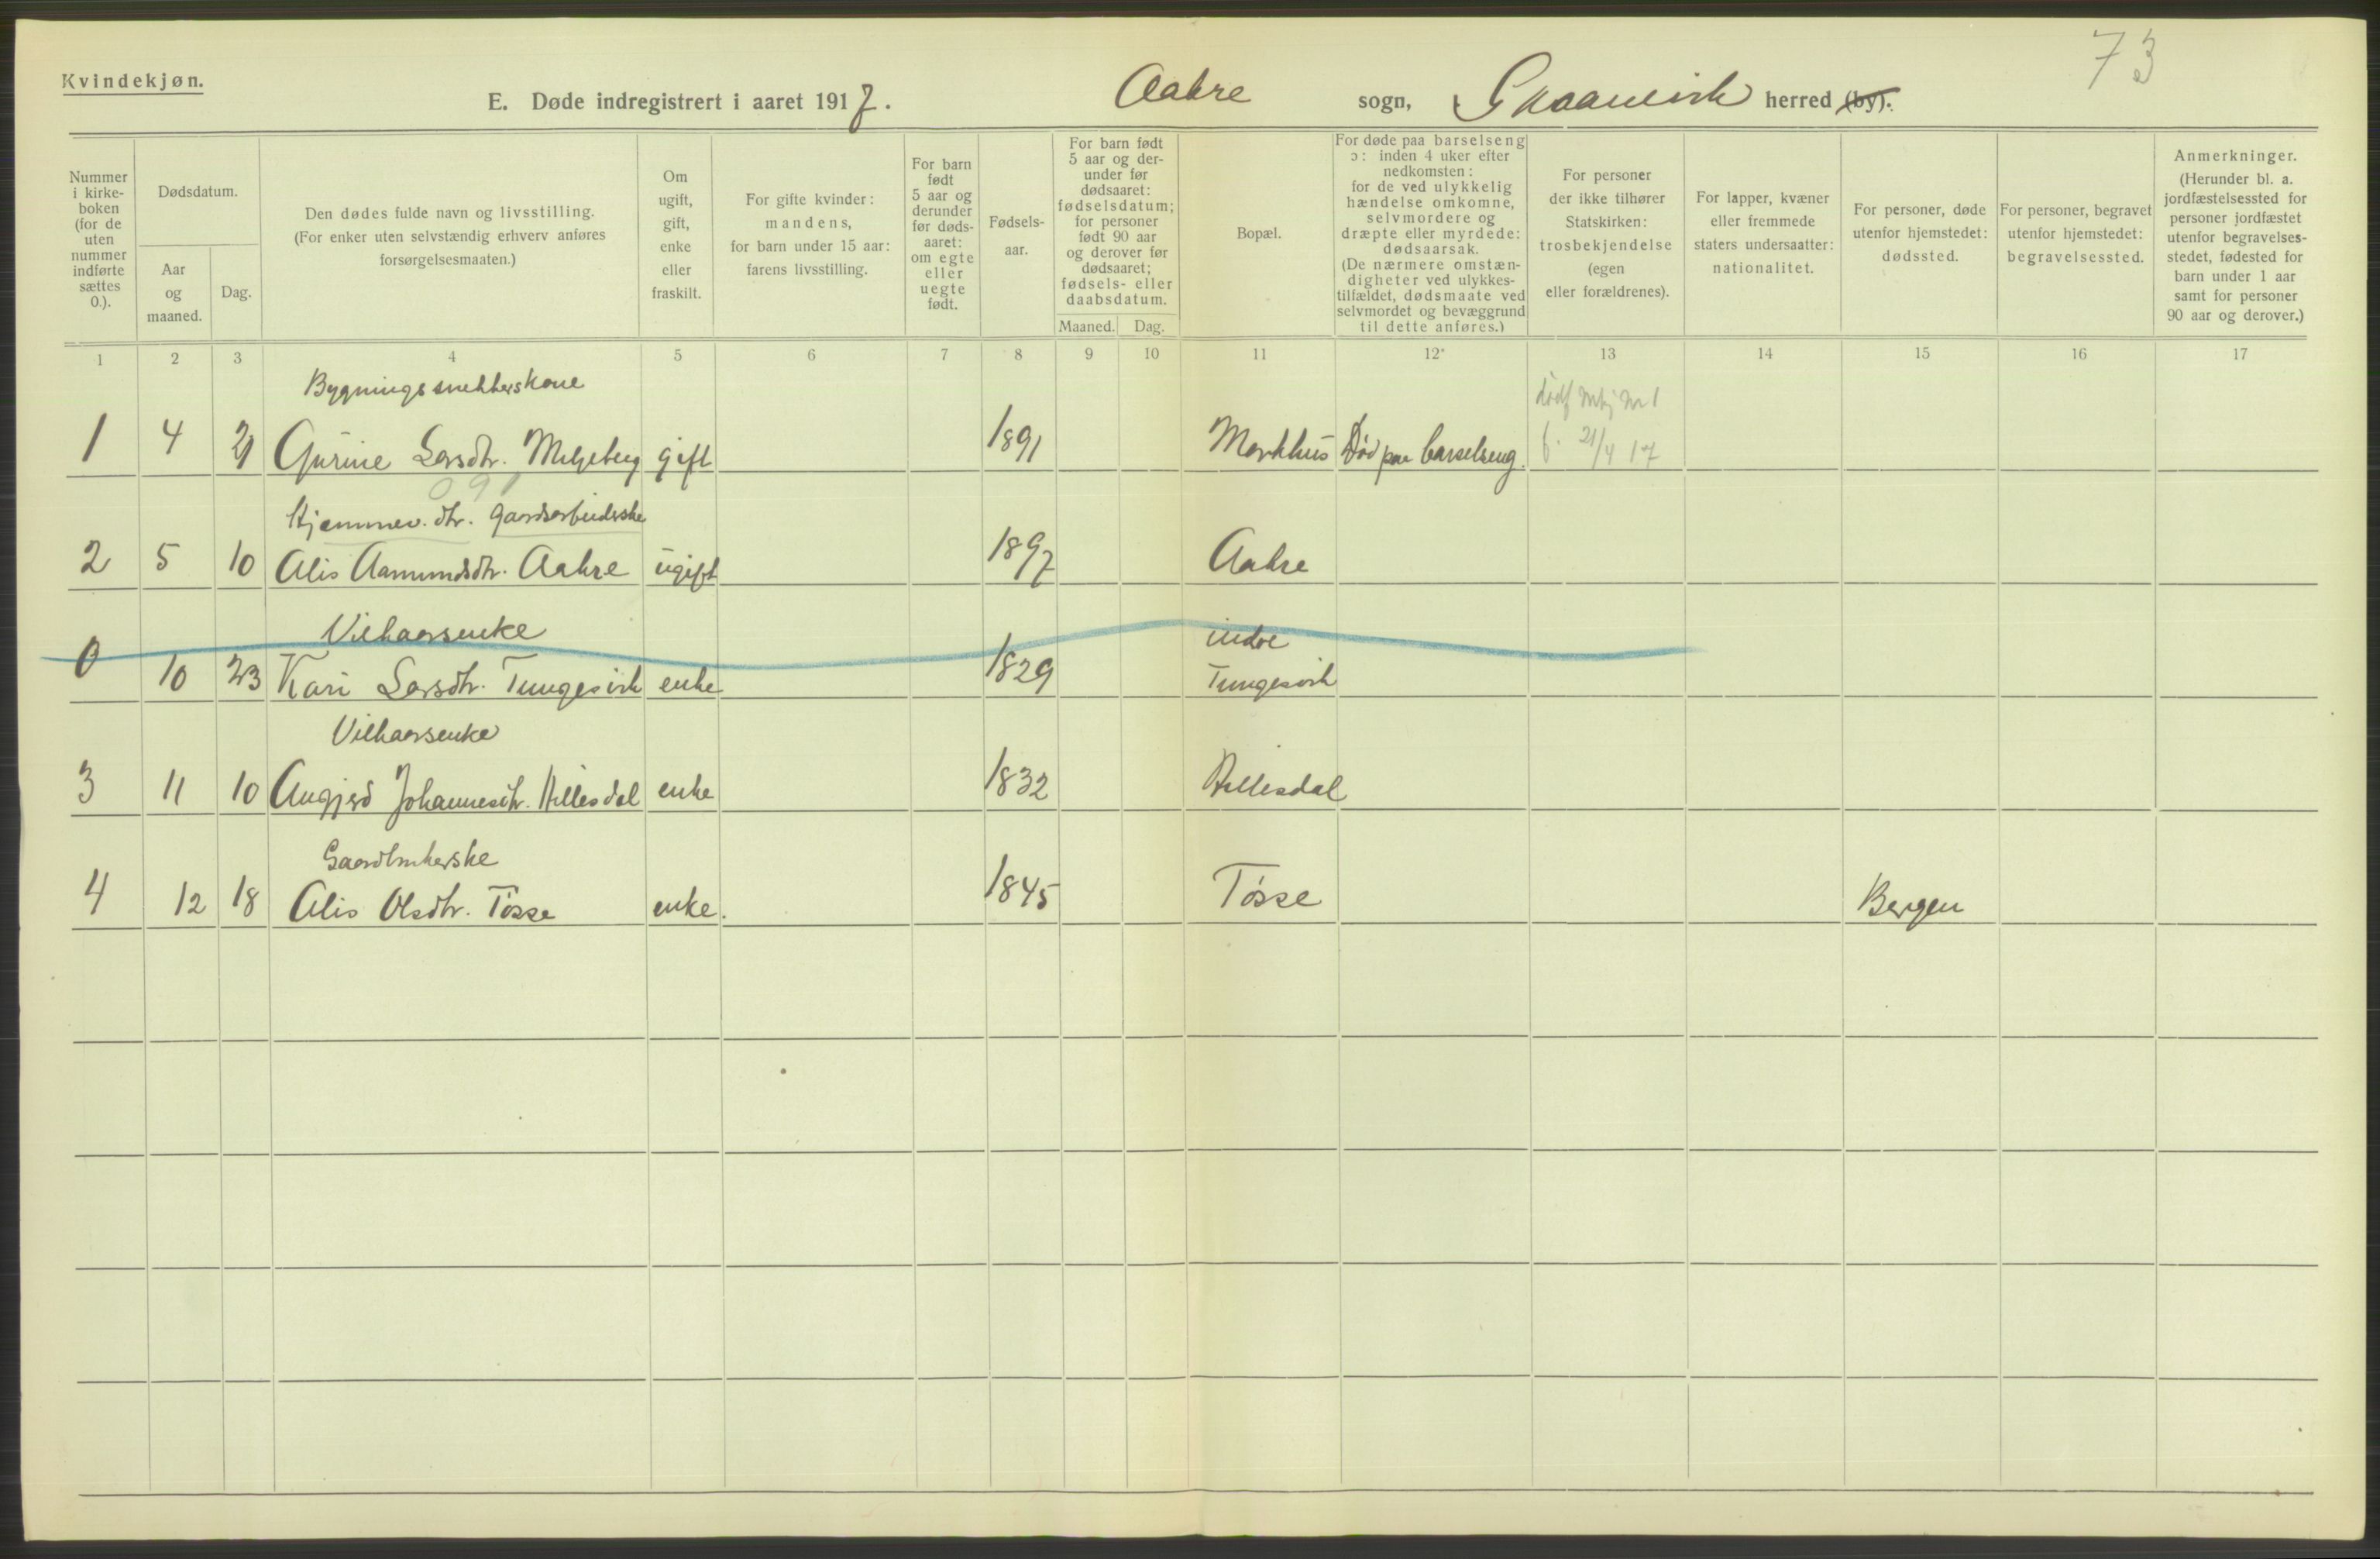 Kvindekjøn.
73
E. Døde indregistrert i aaret 1917. Aakre sogn, Skaanevik herred (by).
Nummer i kirke-boken (for de uten nummer indførte sættes 0.).
Dødsdatum.
Aar og maaned.
Dag.
Den dødes fulde navn og livsstilling.
(For enker uten selvstændig erhverv anføres
forsørgelsesmaaten.)
Om ugift, gift, enke eller fraskilt.
For gifte kvinder: mandens, for barn under 15 aar: farens livsstilling.
For barn født 5 aar og derunder før døds-aaret: om egte eller uegte født.
Fødsels-aar.
For barn født 5 aar og der-under før dødsaaret: fødselsdatum; for personer født 90 aar og derover før dødsaaret; fødsels- eller daabsdatum.
Maaned. Dag.
Bopæl.
For døde paa barselseng ɔ: inden 4 uker efter nedkomsten: for de ved ulykkelig hændelse omkomne, selvmordere og dræpte eller myrdede: dødsaarsak. (De nærmere omstæn-digheter ved ulykkes-tilfældet, dødsmaate ved selvmordet og bevæggrund til dette anføres.)
For personer der ikke tilhører Statskirken: trosbekjendelse (egen eller forældrenes).
For lapper, kvæner eller fremmede staters undersaatter: nationalitet.
For personer, døde utenfor hjemstedet: dødssted.
For personer, begravet utenfor hjemstedet: begravelsessted.
Anmerkninger. (Herunder bl. a. jordfæstelsessted for personer jordfæstet utenfor begravelses-stedet, fødested for barn under 1 aar samt for personer 90 aar og derover.)
1 2 3 4 5 6 7 8 9 10 11 12 13 14 15 16 17
Bygningssnekkerskone
1 4 21 Gurine Larsdtr. Meljeberg gift 1891 Markhus Død paa barselseng. f. 21/4 17
Hjemmev. dtr. gaardsarbeiderske
2 5 10 Alis Aamundsdtr. Aakre ugift 1897 Aakre
Vilkaarsenke indre
0 10 23 Kari Larsdtr. Tungesvik enke 1829 Tungesvik
Vilkaarsenke
3 11 10 Angjerd Johannesdtr. Hillesdal enke 1832 Hillesdal
Gaardbrukerske
4 12 18 Alis Olsdtr. Tøsse enke. 1845 Tøsse Bergen